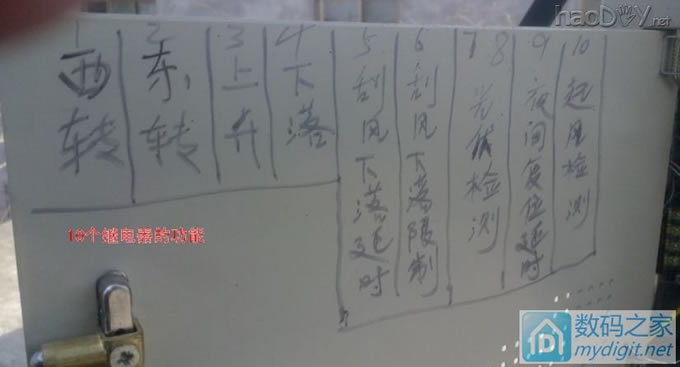 haoDIY.net
1 西转
2 东转
3 上升
4 下落
5 刮风下落延时
6 刮风下落限制
7 8 光线检测
9 夜间复位延时
10 起风检测
10个继电器的功能
数码之家
mydigit.net